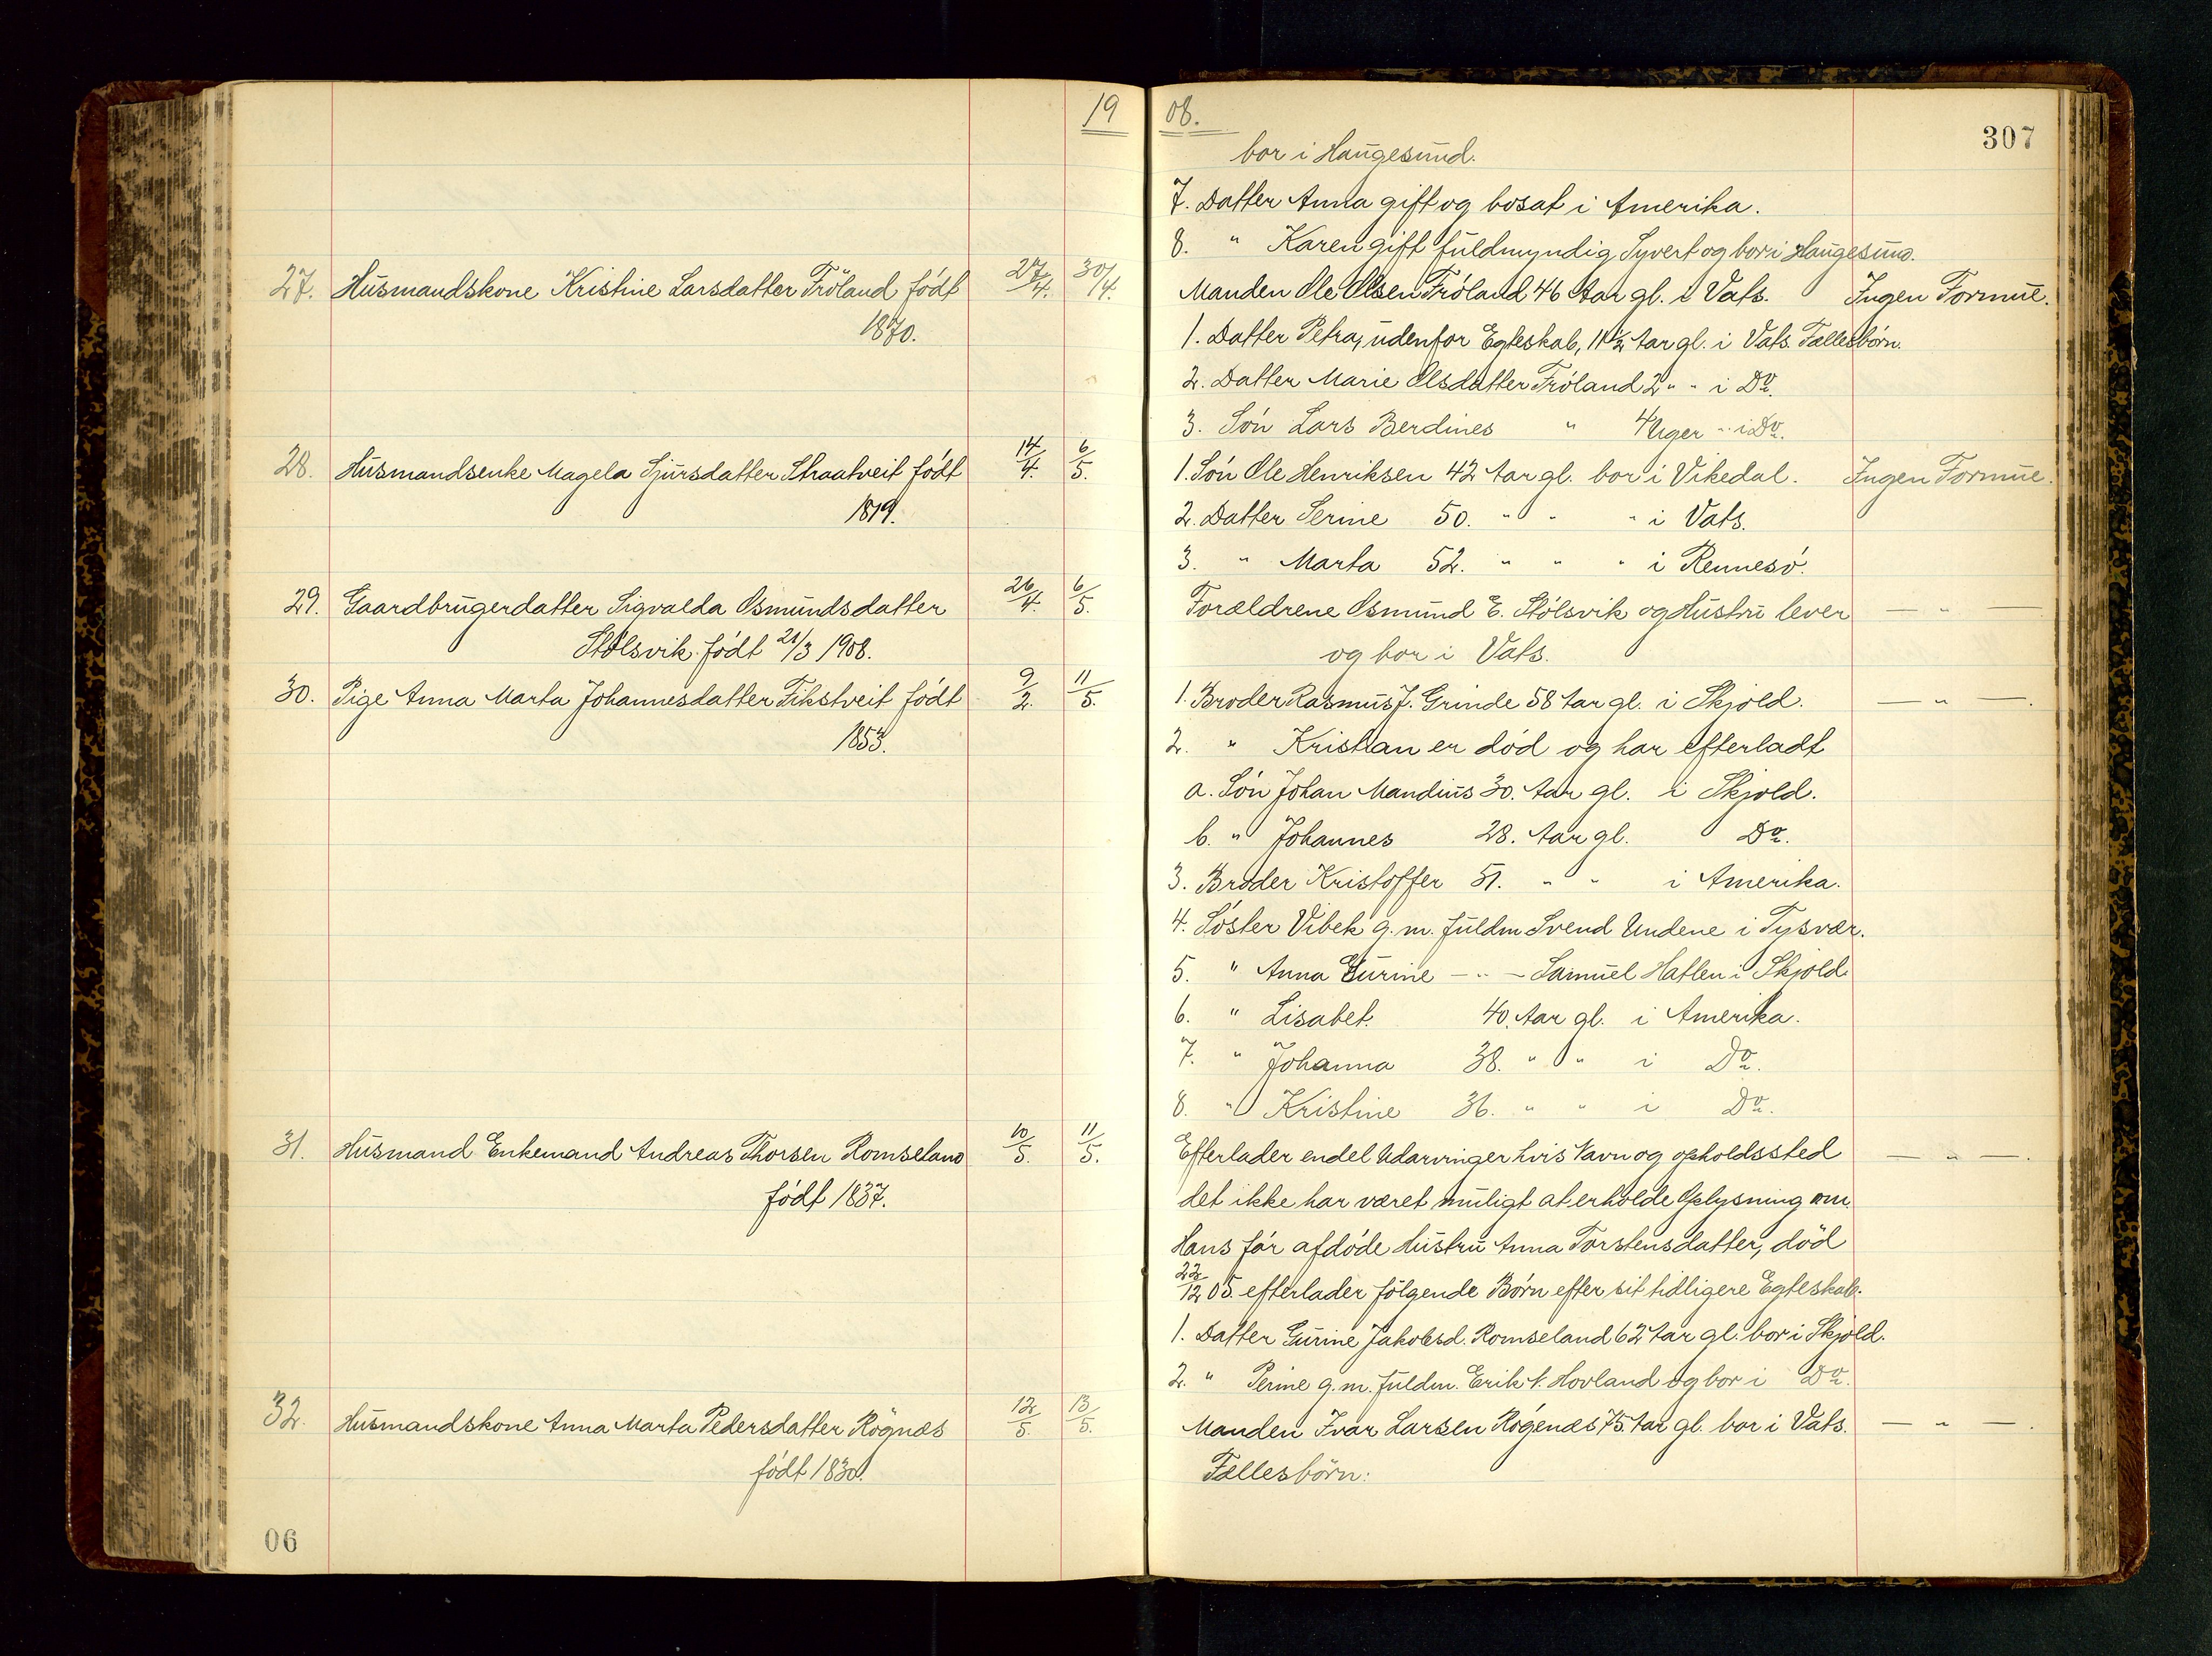 19
27. Husmandskone Kristine Larsdatter Fröland født 27/4. 30/4.
1870.
28. Husmandsenke Magela Sjursdatter Straatveit født 14/4. 6/5.
1819.
29. Gaardbrugerdatter Sigvalda Osmundsdatter 26/4. 6/5.
Stølsvik født 21/3 1908.
30. Pige Anna Marta Johannesdatter Fikstveit født 9/2. 11/5.
1853.
31. Husmand Enkemand Andreas Thorsen Romseland 10/5. 11/5.
født 1837.
32. Husmandskone Anna Marta Pedersdatter Rögnæs 12/5. 13/5.
født 1830.
06
08.
307
bor i Haugesund.
7. Datter Anna gift og bosat i Amerika.
8. " Karen gift fuldmyndig Syvert og bor i Haugesund.
Manden Ole Olsen Fröland 46 Aar gl. i Vats. Ingen Formue.
1. Datter Petra, udenfor Egteskab, 11½ Aar gl. i Vats. Fællesbørn.
2. Datter Marie Olsdatter Fröland 2 " " i Do.
3. Søn Lars Berdines " 4 Uger " i Do.
1. Søn Ole Henriksen 42 Aar gl. bor i Vikedal. Ingen Formue.
2. Datter Serine 50. " " " i Vats.
3. " Marta 52. " " " i Rennesø.
Forældrene Osmund E. Stølsvik og Hustru lever — " —
og bor i Vats.
1. Broder Rasmus J. Grinde 58 Aar gl. i Skjold. — " —.
2. " Kristian er død og har efterladt
a. Søn Johan Mandius 30. Aar gl. i Skjold.
b. " Johannes 28. Aar gl. Do.
3. Broder Kristoffer 51. " " i Amerika.
4. Søster Vibek g. m. fuldm Svend Undene i Tysvær.
5. " Anna Gurine — " — Samuel Hatlen i Skjold.
6. " Lisabet. 40. Aar gl. i Amerika.
7. " Johanna 38. " " i Do.
8. " Kristine 36. " " i Do.
Efterlader endel Udarvinger hvis Navn og opholdssted — " —.
det ikke har været muligt at erholde Oplysning om.
Hans før afdøde Hustru Anna Torstensdatter, död
22/12 05. efterlader følgende Børn efter sit tidligere Egteskab.
1. Datter Gurine Jakobsd. Romseland 62 Aar gl. bor i Skjold.
2. " Perine g. m. fuldm. Erik N. Hovland og bor i Do.
Manden Ivar Larsen Rögenæs 75. Aar gl. bor i Vats. — " —.
Fællesbörn: